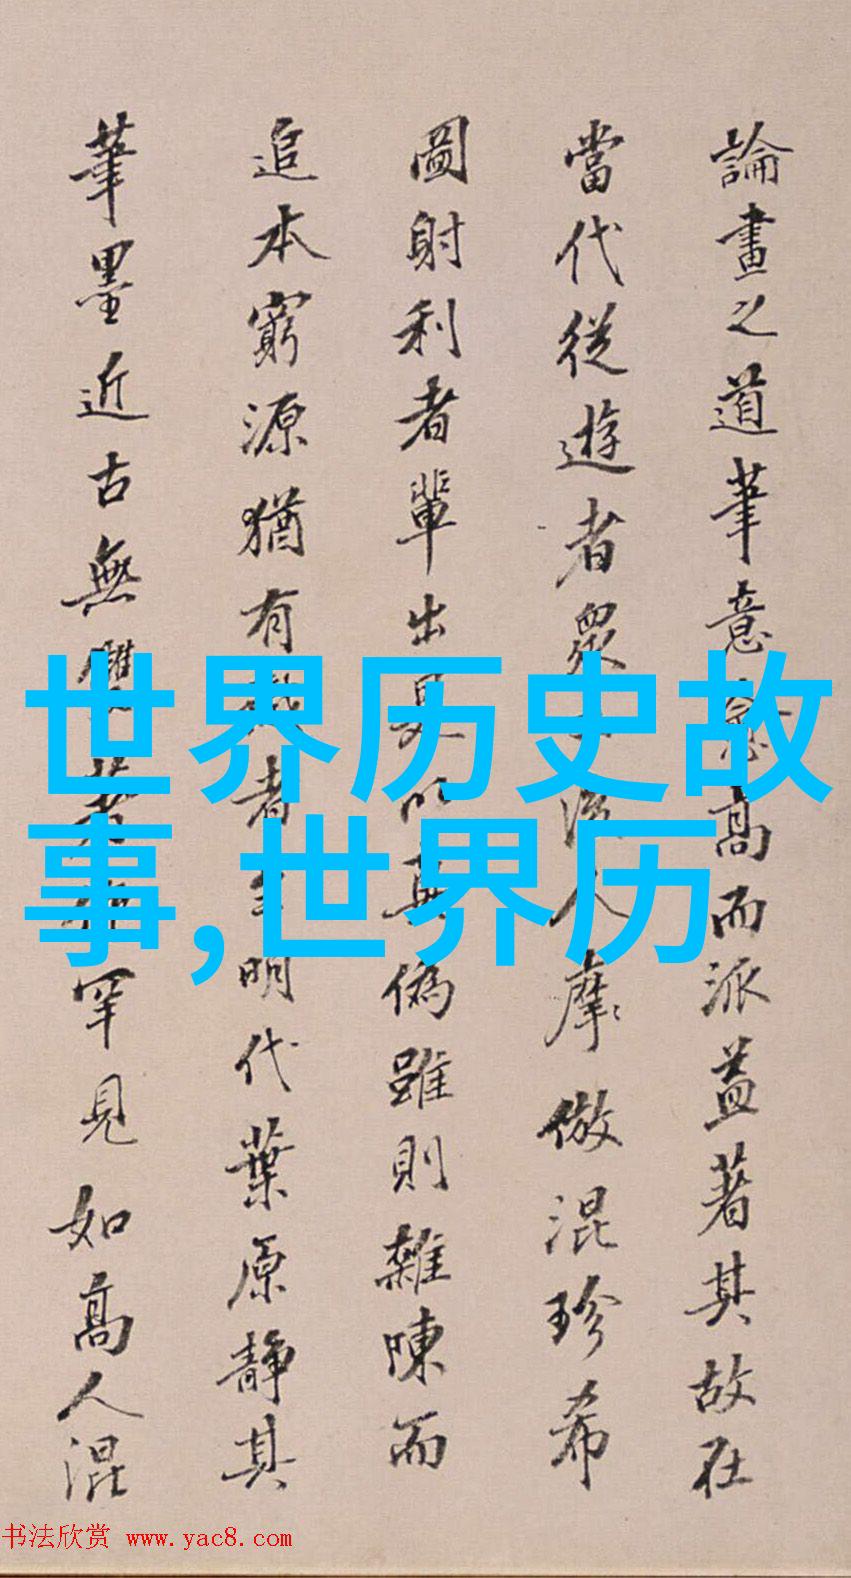 論畫之道筆意愈高而派益著其故在
當代從遊者眾人摩倣混珍希
圖射利者輩出是以真偽雖則雜陳而
追本窮源猶有者明代葉原靜其
筆墨近古無雙若罕見如高人混
世界历史故
事,世界历
书法欣赏 www.yac8.com